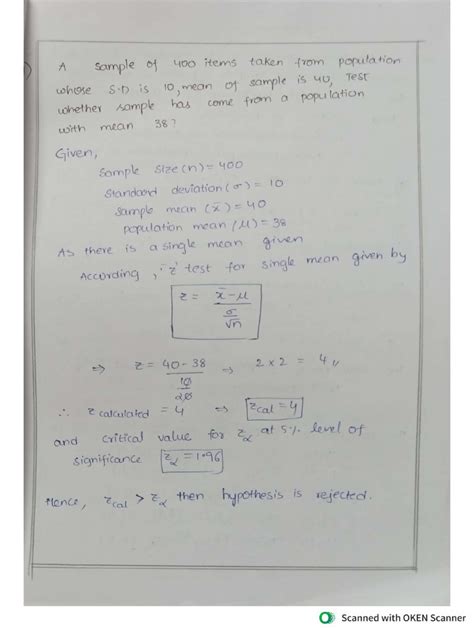 A Sample of 400 items taken from population
whose S.D is 10, mean of sample is 40, Test
whether sample has come from a population
with mean 38?
Given,
Sample Size(n) = 400
Standard deviation(σ) = 10
Sample mean (x̄) = 40
population mean (μ) = 38
As there is a single mean given
According, 'z' test for single mean given by
z = x̄-μ
σ
√n
⇒ z = 40-38 ⇒ 2 x 2 = 4 //
10
20
∴ z calculated = 4 ⇒ zcal = 4
and critical value for zα at 5% level of
significance zα = 1.96
Hence, zcal > zα then hypothesis is rejected.
Scanned with OKEN Scanner